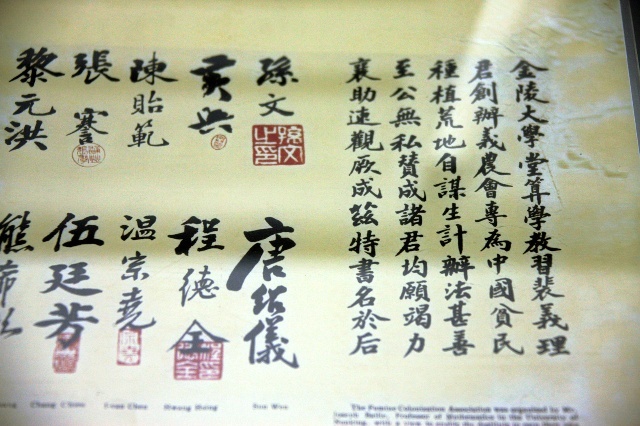 金陵大學堂算學教習裴義理
君創辦義農會專為中國貧民
種植荒地自謀生計辦法甚善
至公無私贊成諸君均願竭力
襄助速觀厥成茲特書名於后
孫文
孫文之印
黃興
陳貽範
張謇
黎元洪
唐紹儀
程德全
溫宗堯
伍廷芳
熊希
Chang Chien Ivan Chen Hwang Hsing Sun Wen
The Famine Colonization Association was organized by Mr.
Joseph Bailie, Professor of Mathematics in the University of
Nanking, with a view to enable the